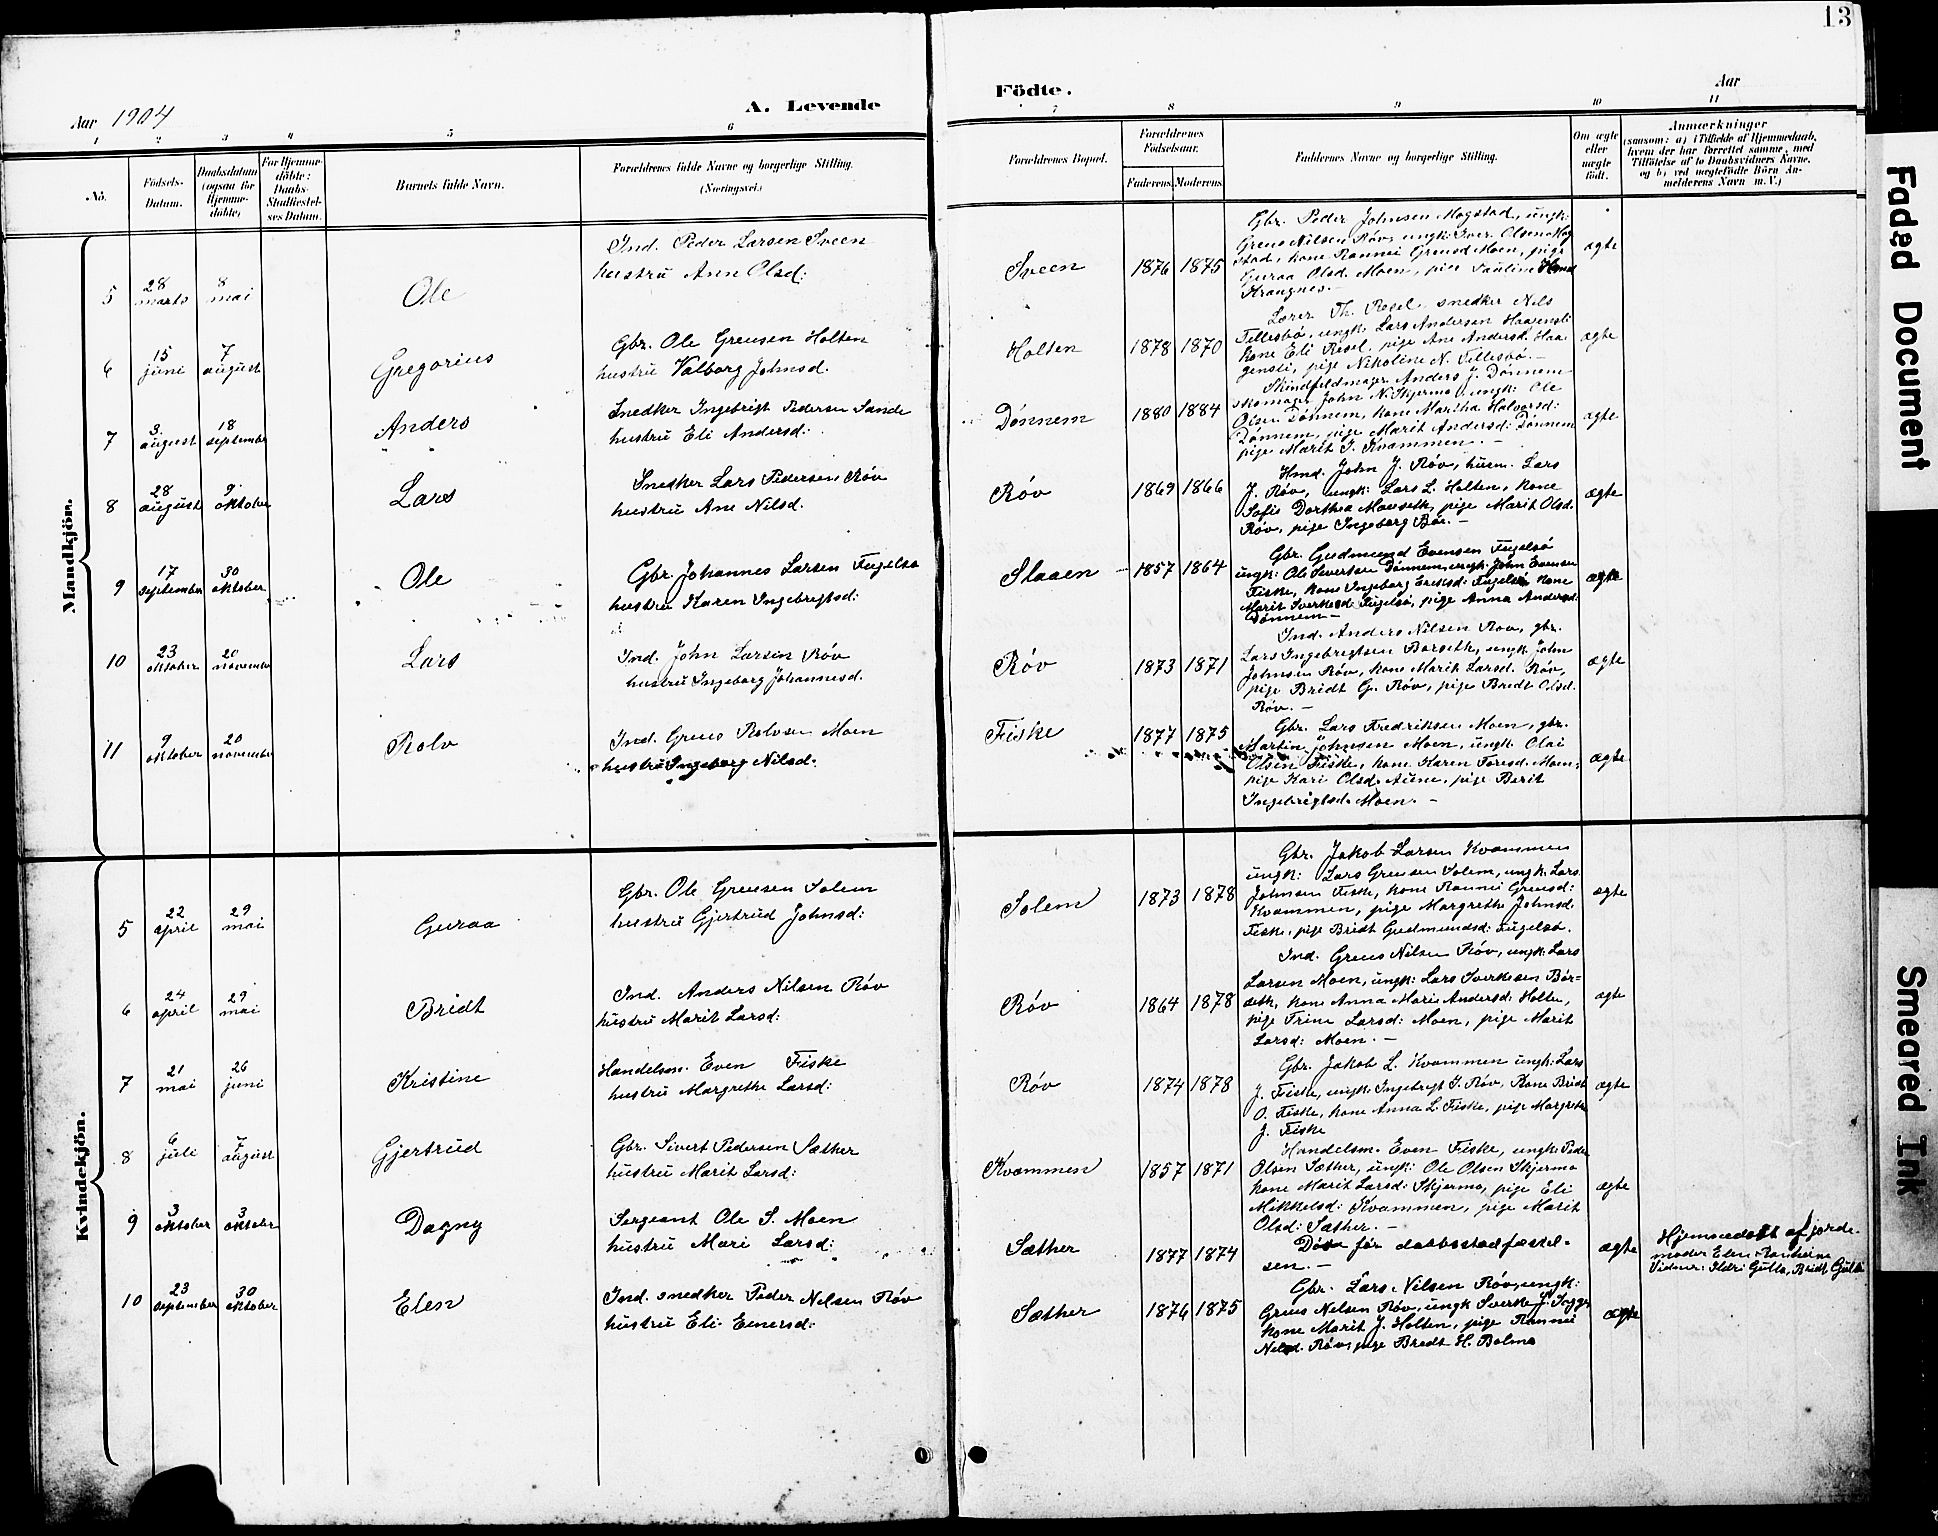 13
Aar 1904
A. Levende
Födte.
Aar
1 2 3 4 5 6 7 8 9 10 11
No.
Födsels-
Datum.
Daabsdatum
(ogsaa for
Hjemme-
döbte)
For Hjemme-
döbte:
Daabs-
Stadfæstel-
ses Datum.
Barnets fulde Navn.
Forældrenes fulde Navne og borgerlige Stilling.
(Næringsvei.)
Forældrenes Bopæl.
Forældrenes
Födselsaar.
Faderens. Moderens.
Faddernes Navne og borgerlige Stilling.
Om ægte
eller
uægte
födt.
Anmærkninger
(saasom: a) i Tilfælde af Hjemmedaab,
hvem der har forrettet samme, med
Tilföielse af to Daabsvidners Navne,
og b) ved uægtefödte Börn An-
melderens Navn m. V.)
Mandkjön.
5
28
marts
8
mai
Ole
Ind. Peder Larsen Sveen
hustru Ann Olsd:
Sveen
1876 1875
Gbr. Peder Johnsen Mogstad, ungk:
Greus Nilsen Røv, ungk: Iver Olsen Mog
stad, kone Rannei Greusd Moen, pige
Guraa Olsd. Moen, pige Pauline
Krangnes.-
ægte
6
15
juni
7
august
Gregorius
Gbr. Ole Greusen Holten
hustru Valborg Johnsd.
Holten
1878 1870
Lærer Th. Resel, snedker Nils
Tellesbø, ungk. Lars Andersen Haagensli
kone Eli Resel, pige Ane Andersd. Haa-
gensli, pige Nikoline N. Tellesbø.-
ægte
7
3.
august
18
september
Anders
Snedker Ingebrigt Pedersen Sande
hustru Eli Andersd:
Dønnem
1880 1884
Skindfeldmager Anders J. Dønnem
skomager John N. Skjermo, ungk: Ole
Olsen Dønnem, kone Maritha Halvorsd:
Dønnem, pige Marit Andersd: Dønnem
pige Marit I. Kvammen.-
ægte
8
28
august
9
oktober
Lars
Snedker Lars Pedersen Røv
hustru Ane Nilsd.
Røv
1869 1866
Hmd. John J. Røv, husm. Lars
J. Røv, ungk: Lars L. Holten, kone
Sofie Dorthea Mauseth, pige Marit Olsd.
Røv, pige Ingeborg Bøe.-
ægte
9
17
september
30
oktober
Ole
Gbr. Johannes Larsen Fugelsø
hustru Karen Ingebregtsd:
Slaaen
1857 1864
Gbr. Gudmund Evensen Fugelsø
ungk: Ole Sivertsen Dønnem, ungk: John Evensen
Fiske, kone Ingeborg Eriksd: Fugelsø, kone
Marit Sverkesd: Fugelsø, pige Anna Andersd:
Dønnem-
ægte
10
23
oktober
20
november
Lars
Ind. John Larsen Røv
hustru Ingeborg Johannesd.
Røv
1873 1871
Ind. Anders Nilsen Røv, gbr.
Lars Ingebregtsen Børseth, ungk John
Johnsen Røv, kone Marit Larsd. Røv,
pige Bridt G. Røv, pige Bredt Olsd.
Røv.-
ægte
11
9
oktober
20
november
Rolv
Ind. Greus Rolvsen Moen
hustru Ingeborg Nilsd.
Fiske
1877 1875
Gbr. Lars Fredriksen Moen, gbr.
Martin Johnsen Moen, ungk: Olai
Olsen Fiske, kone Karen Toresd. Moen,
pige Kari Olsd. Aune, pige Berit
Ingebrigtsd. Moen.-
ægte
Kvindekjön.
5
22
april
29
mai
Guraa
Gbr. Ole Greusen Solem
hustru Gjertrud Johnsd:
Solem
1873 1878
Gbr. Jakob Larsen Kvammen
ungk: Lars Greusen Solem, ungk: Lars
Johnsen Fiske, kone Rannei Greusd:
Kvammen, pige Margrethe Johnsd.
Fiske, pige Bridt Gudmundsd: Fugelsø.
ægte
6
24
april
29
mai
Bridt
Ind. Anders Nilsen Røv
hustru Marit Larsd:
Røv
1864 1878
Ind. Greus Nilsen Røv, ungk: Lars
Larsen Moen, ungk: Lars Sverkesen Bør=
seth, kone Anna Marie Andersd: Holte,
pige Trine Larsd: Moen, pige Marit
Larsd: Moen.-
ægte
7
21
mai
26
juni
Kristine
Handelsm. Even Fiske
hustru Margrethe Larsd:
Røv
1874 1878
Gbr. Jakob L. Kvammen ungk: Lars
J. Fiske, ungk: Ingebrigt I. Røv, kone Bridt
O. Fiske, kone Anna L. Fiske, pige Margrethe
J. Fiske
ægte
8
6
juli
7
august
Gjertrud
Gbr. Sivert Pedersen Sæther
hustru Marit Larsd:
Kvammen
1857 1871
Handelsm. Even Fiske, ungk: Peder
Olsen Sæther, ungk: Ole Olsen Skjermo
kone Marit Larsd: Skjermo, pige Eli
Mikkelsd: Kvammen, pige Marit
Olsd: Sæther.-
ægte
9
3
oktober
3
oktober
Dagny
Sergeant Ole S. Moen
hustru Mari Larsd:
Sæther
1877 1874
Døde før daabsstadfæstel-
sen.-
ægte
Hjemmedøbt af jorde-
moder Elen
Vidner: Ildri Gulla, Bridt Gulla
10
23
september
30
oktober
Elen
Ind. snedker Peder Nilsen Røv
hustru Eli Einersd:
Sæther
1876 1875
Gbr. Lars Nilsen Røv, ungk:
Greus Nilsen Røv, ungk Sverke J. Sogge
kone Marit J. Holten, pige Rannei
Nilsd. Røv, pige Bredt H. Bolme
ægte
Faded Document
Smeared Ink